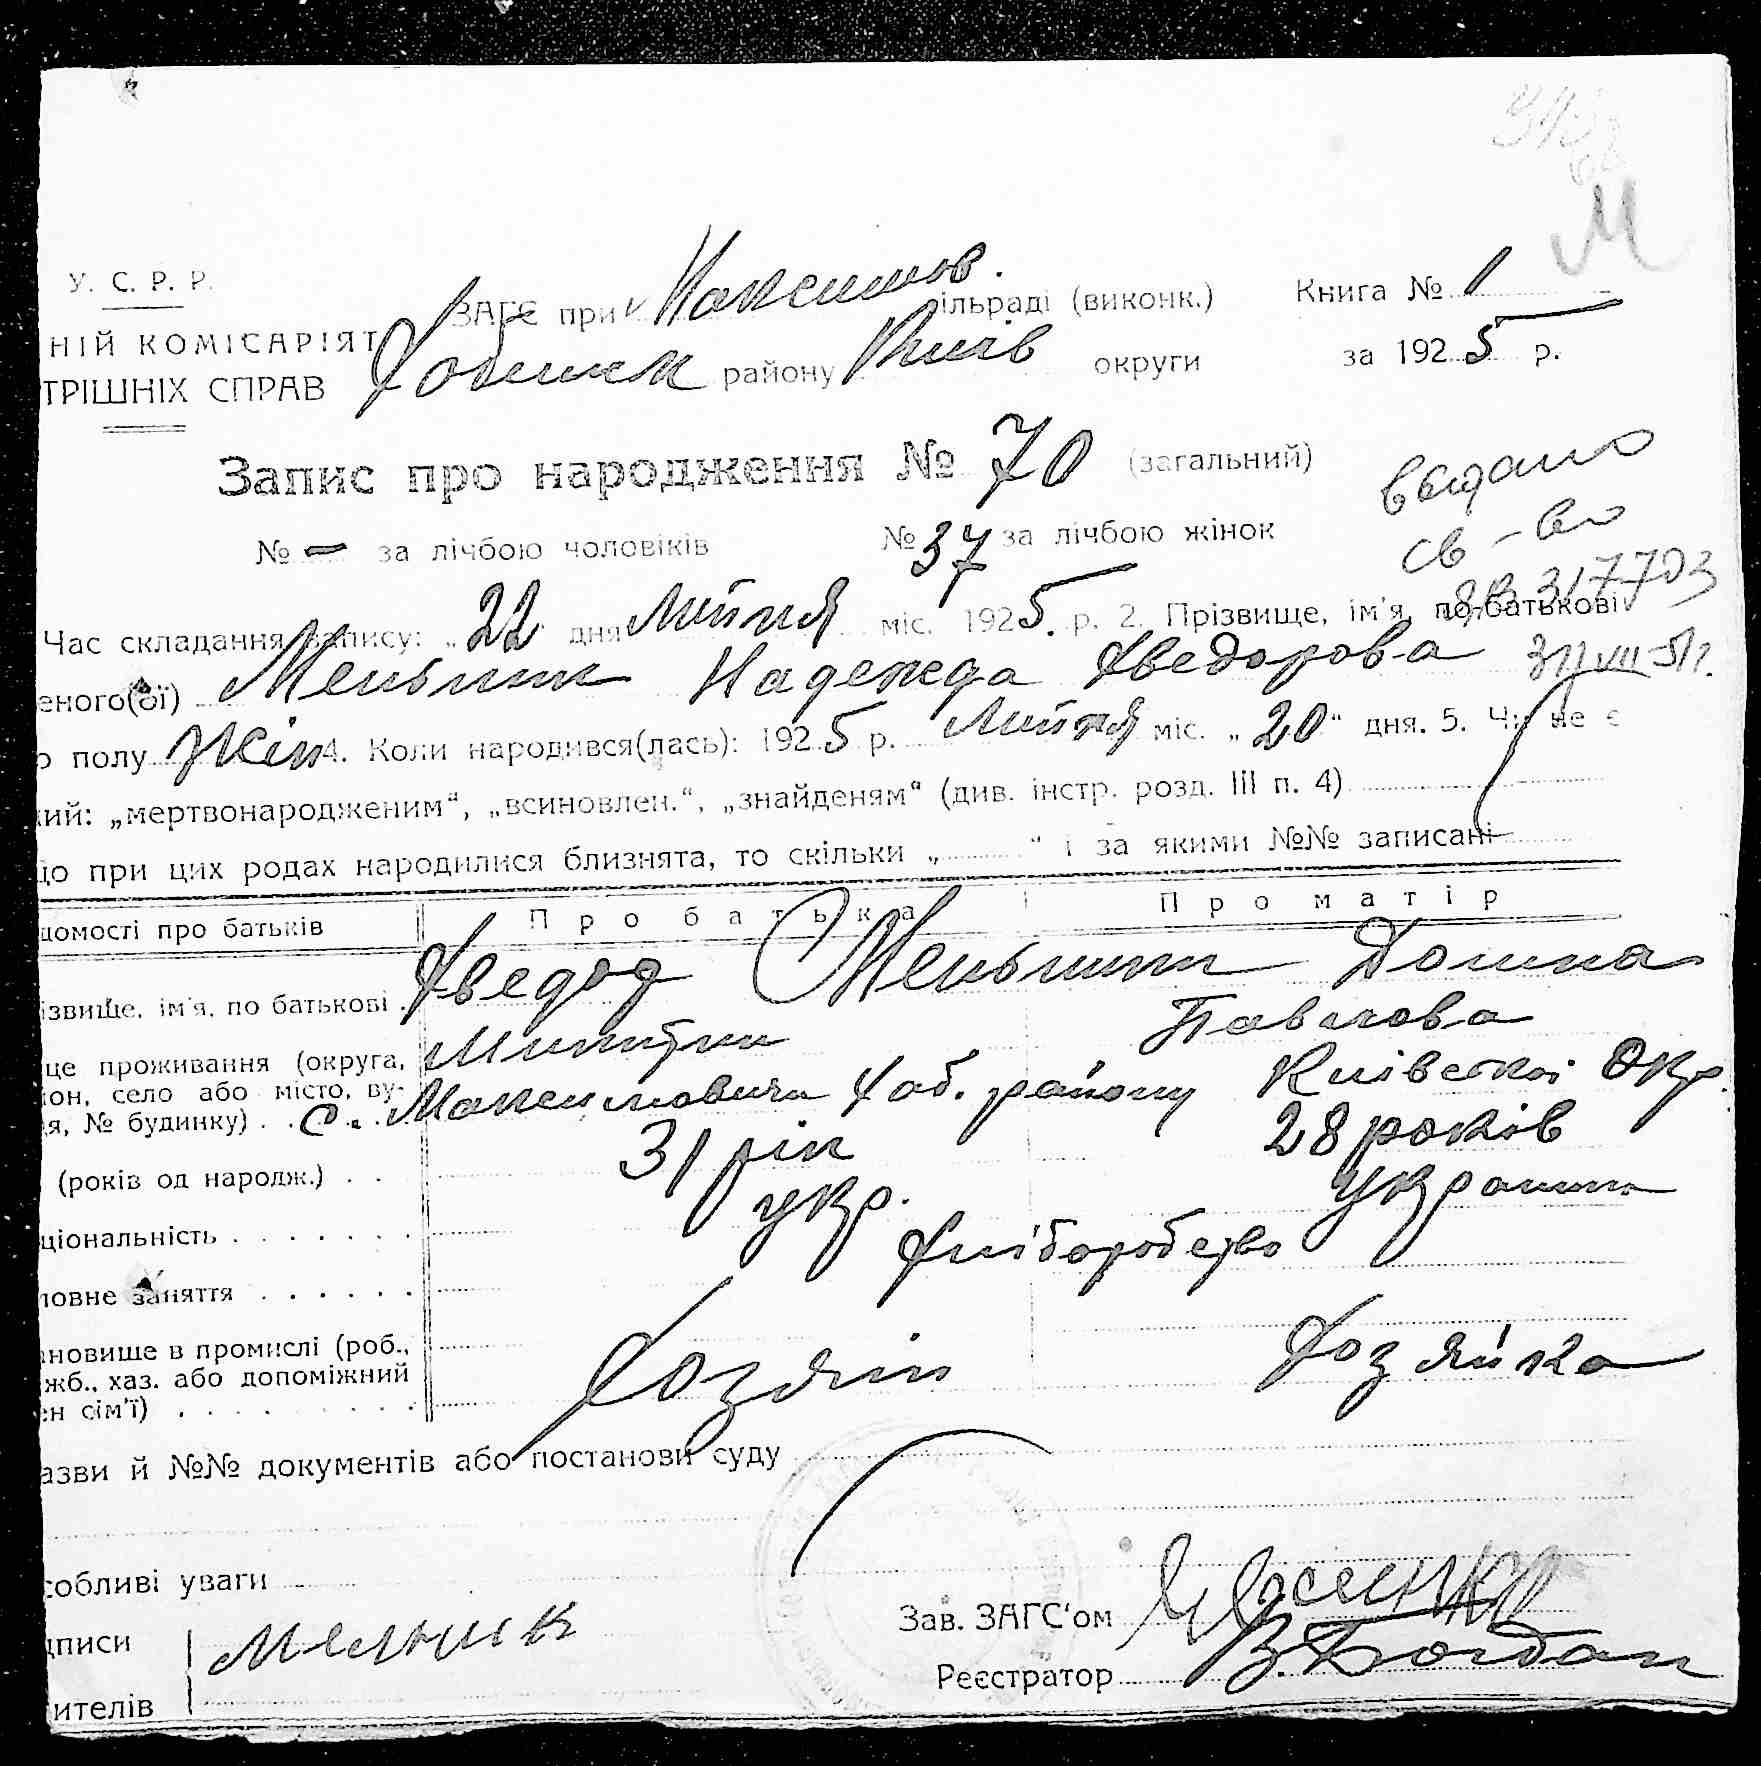 У. С. Р. Р.
НІЙ КОМІСАРІЯТ
ТРІШНІХ СПРАВ
ЗАГС при Максимов. ільраді (виконк.)
Хабенск району Київ округи
Книга № 1
за 1925 р.
М
Запис про народження № 70 (загальний)
№ — за лічбою чоловіків № 37 за лічбою жінок
выдано
св-во
317703
Час складання запису: „22 дня Липня міс. 1925 р. 2. Прізвище, ім'я, по-батькові
еного(ої) Меньник Надежда Хведорова
о полу Жін 4. Коли народився(лась): 1925 р. Липня міс. „20“ дня. 5. Чи не є
кий: „мертвонародженим“, „всиновлен.“, „знайденям“ (див. інстр. розд. III п. 4)
що при цих родах народилися близнята, то скільки „ “ і за якими №№ записані
домості про батьків Про батька Про матір
ізвище, ім'я, по батькові . Хведод Меньник Домна
Микитин Павлова
це проживання (округа,
іон, село або місто, ву-
я, № будинку) . . с. Максимовичи Хаб. району Київської Окр.
(років од народж.) . . 31 рік 28 років
ціональність . . . . . . . укр. украинка
ловне заняття . . . . . . Хліборобство
ановище в промислі (роб.,
жб., хаз. або допоміжний
ен сім'ї) . . . . . . . . . Хозяін Хозяйка
азви й №№ документів або постанови суду
собливі уваги
дписи Мельник
ителів
Зав. ЗАГС'ом
Реєстратор В. Богдан